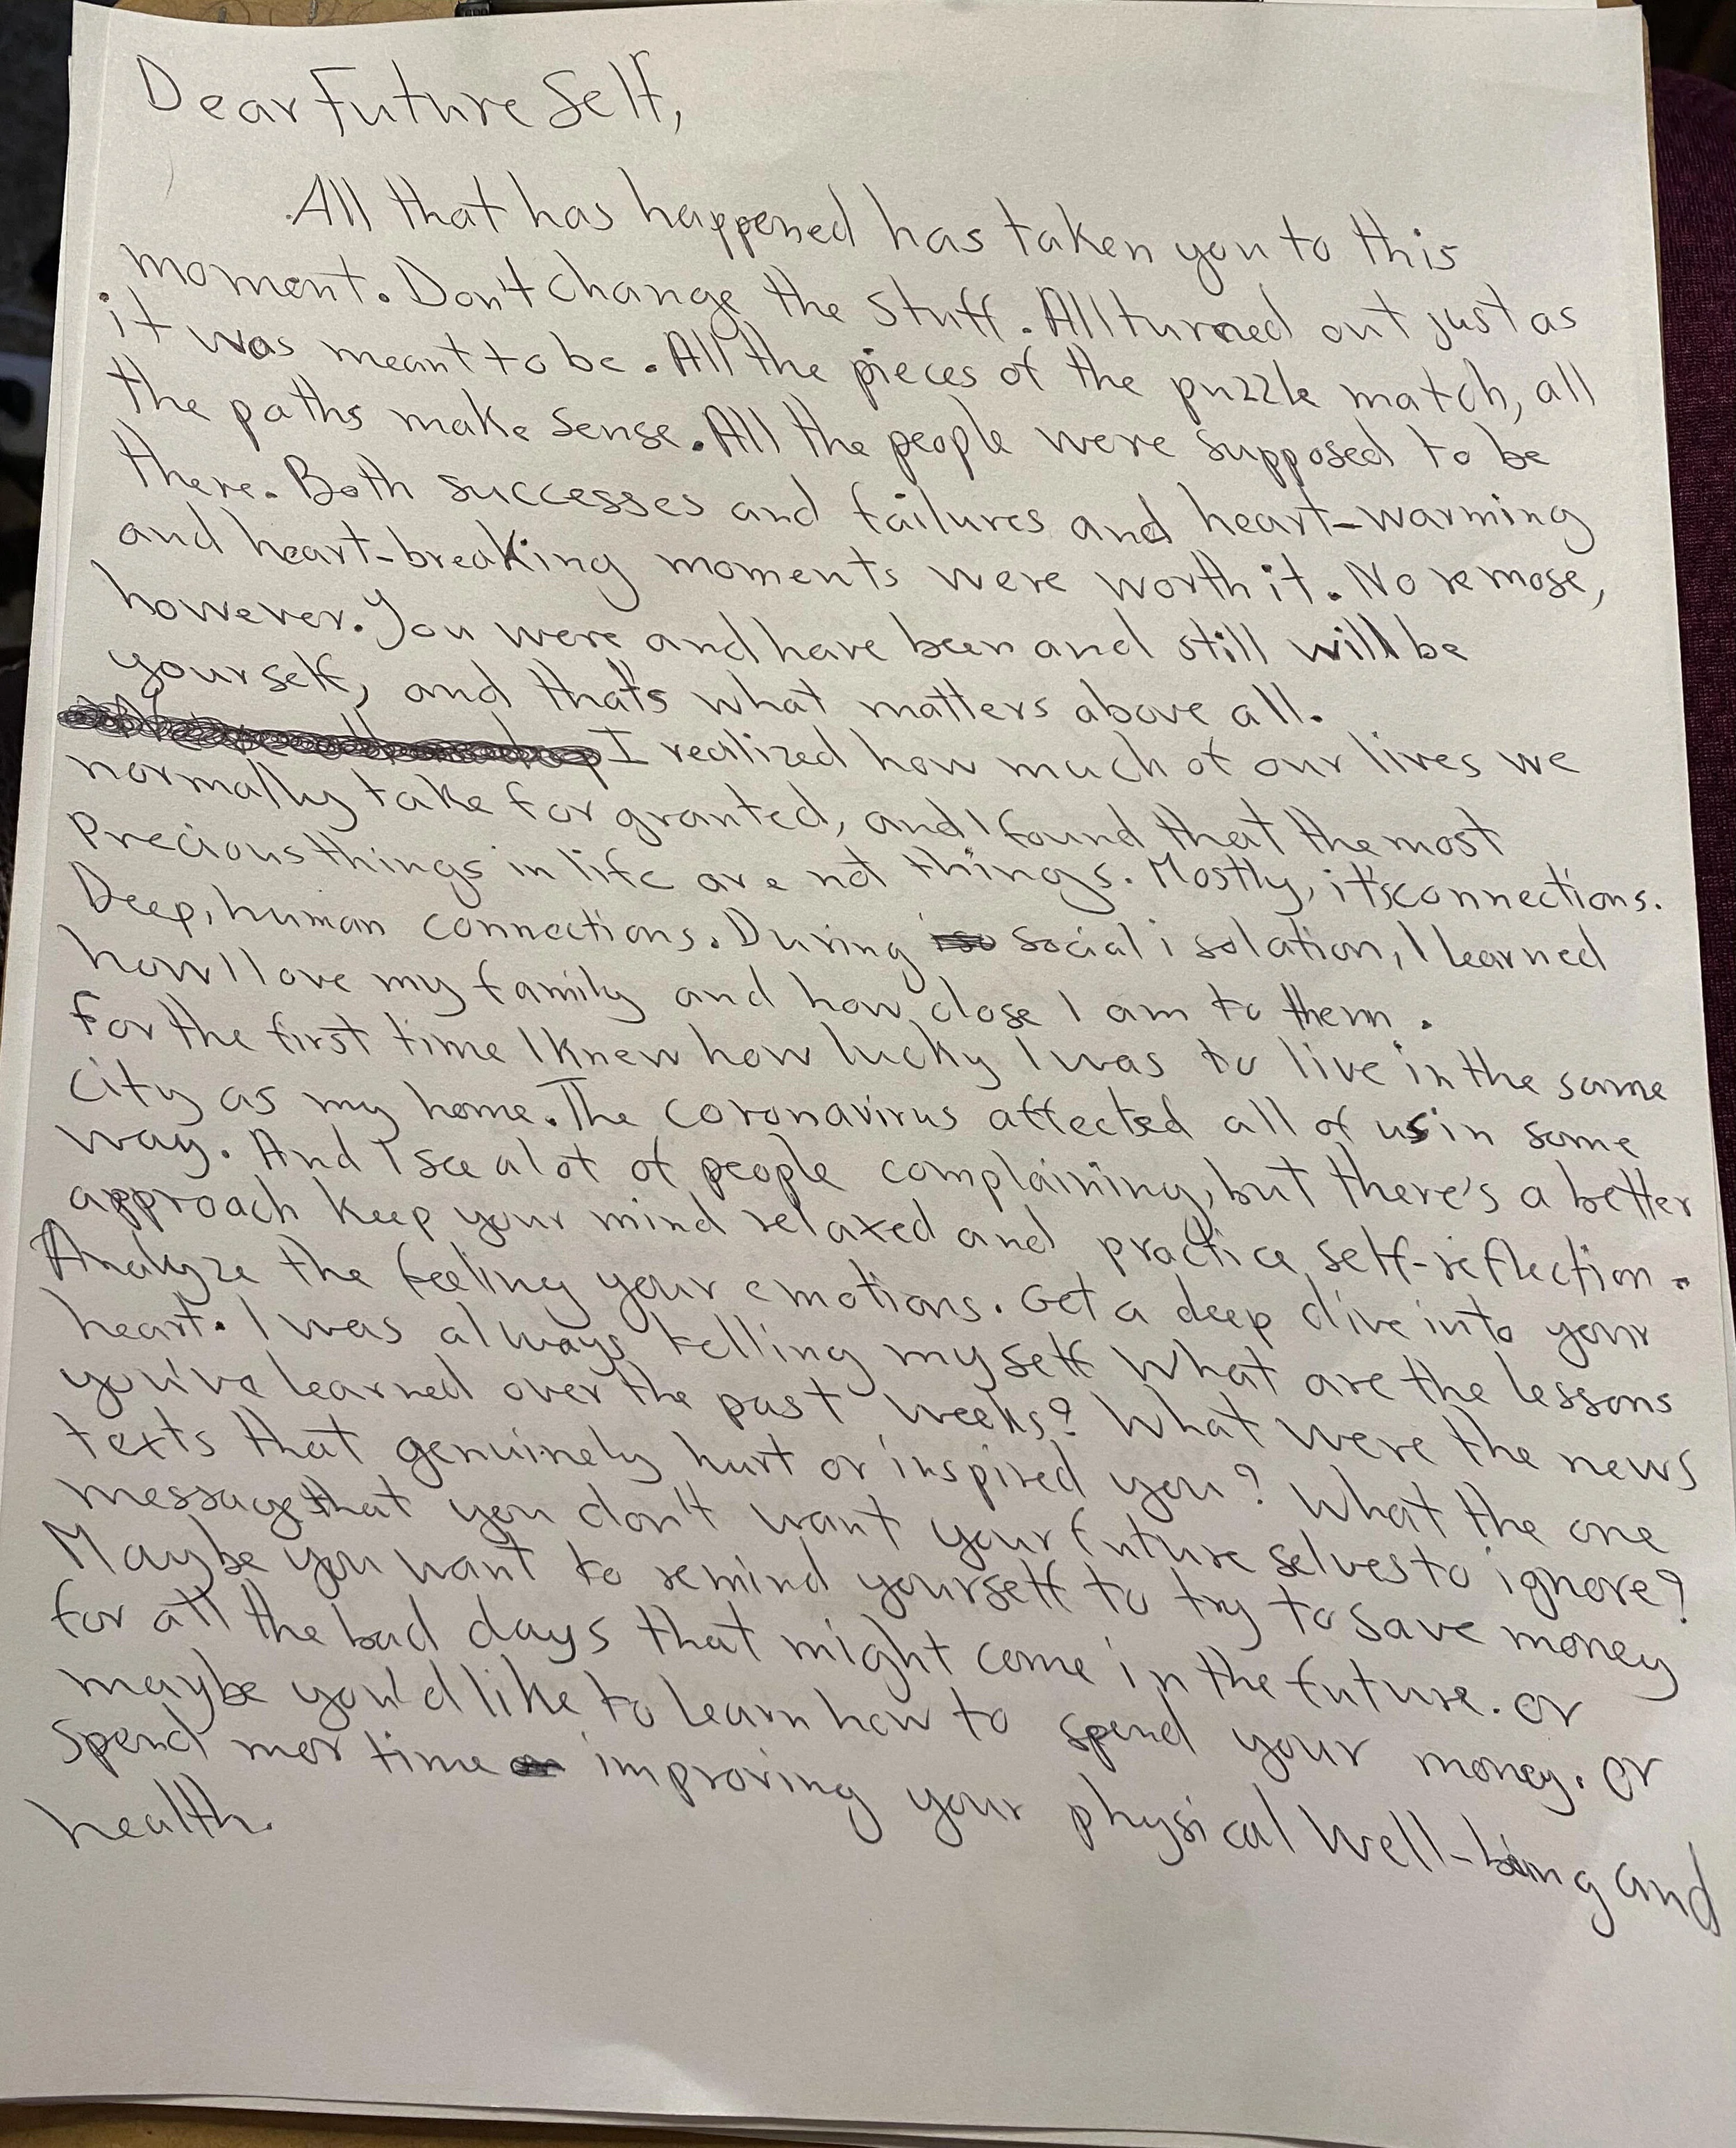 Dear Future Self,
All that has happened has taken you to this
moment. Don't change the stuff. All turned out just as
it was meant to be. All the pieces of the puzzle match, all
the paths make sense. All the people were supposed to be
there. Both successes and failures and heart-warming
and heart-breaking moments were worth it. No remose,
however. You were and have been and still will be
yourself, and that's what matters above all.
I realized how much of our lives we
normally take for granted, and I found that the most
precious things in life are not things. Mostly, it's connections.
Deep, human connections. During social isolation, I learned
how I love my family and how close I am to them.
For the first time I knew how lucky I was to live in the same
city as my home. The coronavirus affected all of us in some
way. And I see a lot of people complaining, but there's a better
approach keep your mind relaxed and practice self-reflection.
Analyze the feeling your emotions. Get a deep dive into your
heart. I was always telling myself What are the lessons
you've learned over the past weeks? What were the news
texts that genuinely hurt or inspired you? What the one
message that you don't want your future selves to ignore?
Maybe you want to remind yourself to try to save money
for all the bad days that might come in the future. or
maybe you'd like to learn how to spend your money. or
spend mor time improving your physical well-being and
health.